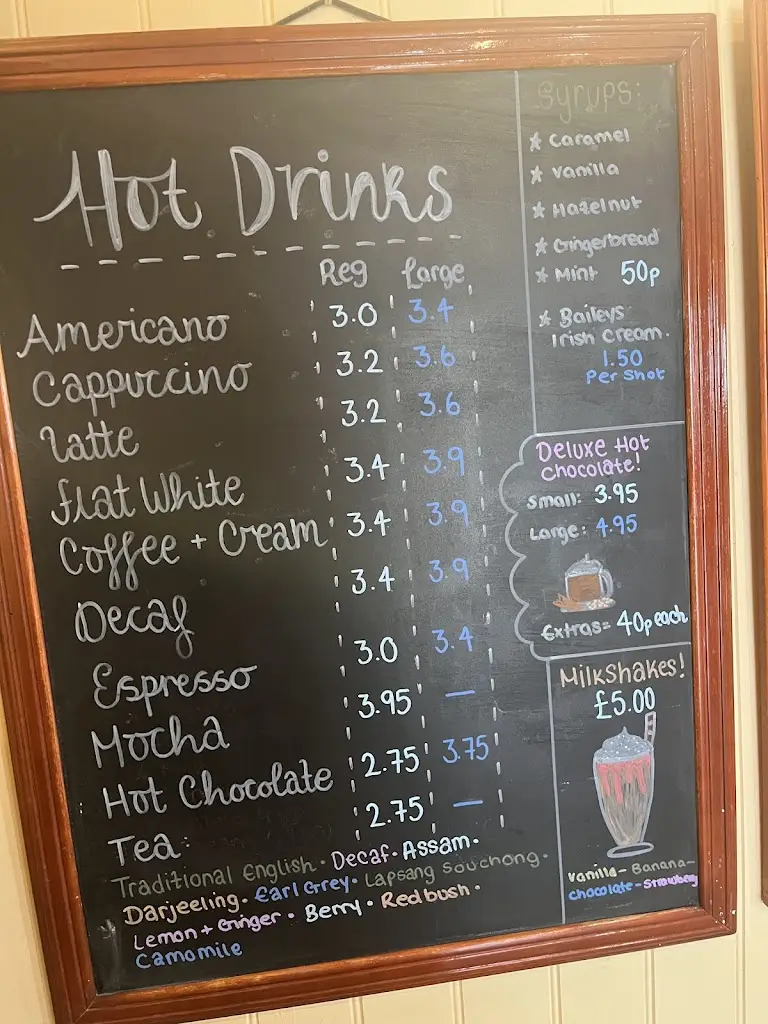 Hot Drinks
Reg Large
Americano 3.0 3.4
Cappuccino 3.2 3.6
Latte 3.2 3.6
Flat White 3.4 3.9
Coffee + Cream 3.4 3.9
Decaf 3.4 3.9
Espresso 3.0 3.4
Mocha 3.95 —
Hot Chocolate 2.75 3.75
Tea: 2.75 —
Traditional English · Decaf · Assam ·
Darjeeling · Earl Grey · Lapsang Souchong ·
Lemon + Ginger · Berry · Redbush ·
Camomile
Syrups:
★ Caramel
★ Vanilla
★ Hazelnut
★ Gingerbread
★ Mint 50p
★ Baileys
Irish Cream.
1.50
Per Shot
Deluxe Hot
Chocolate!
Small: 3.95
Large: 4.95
Extras = 40p each
Milkshakes!
£5.00
Vanilla - Banana -
Chocolate - Strawberry